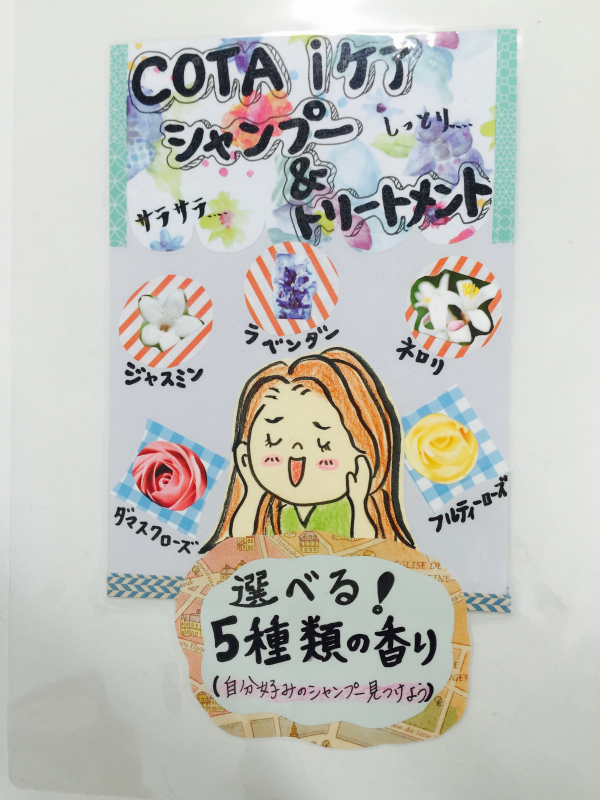 COTA iケア
シャンプー
しっとり....
&
サラサラ....
トリートメント
ラベンダー
ジャスミン
ネロリ
ダマスクローズ
フルティーローズ
選べる!
5種類の香り
(自分好みのシャンプー見つけよう)